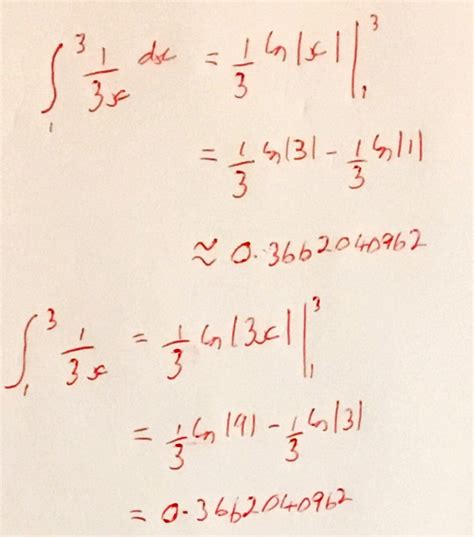 ∫₁³ 1/3x dx = 1/3 ln|x| |₁³
= 1/3 ln|3| - 1/3 ln|1|
≈ 0.3662040962
∫₁³ 1/3x = 1/3 ln|3x| |₁³
= 1/3 ln|9| - 1/3 ln|3|
= 0.3662040962